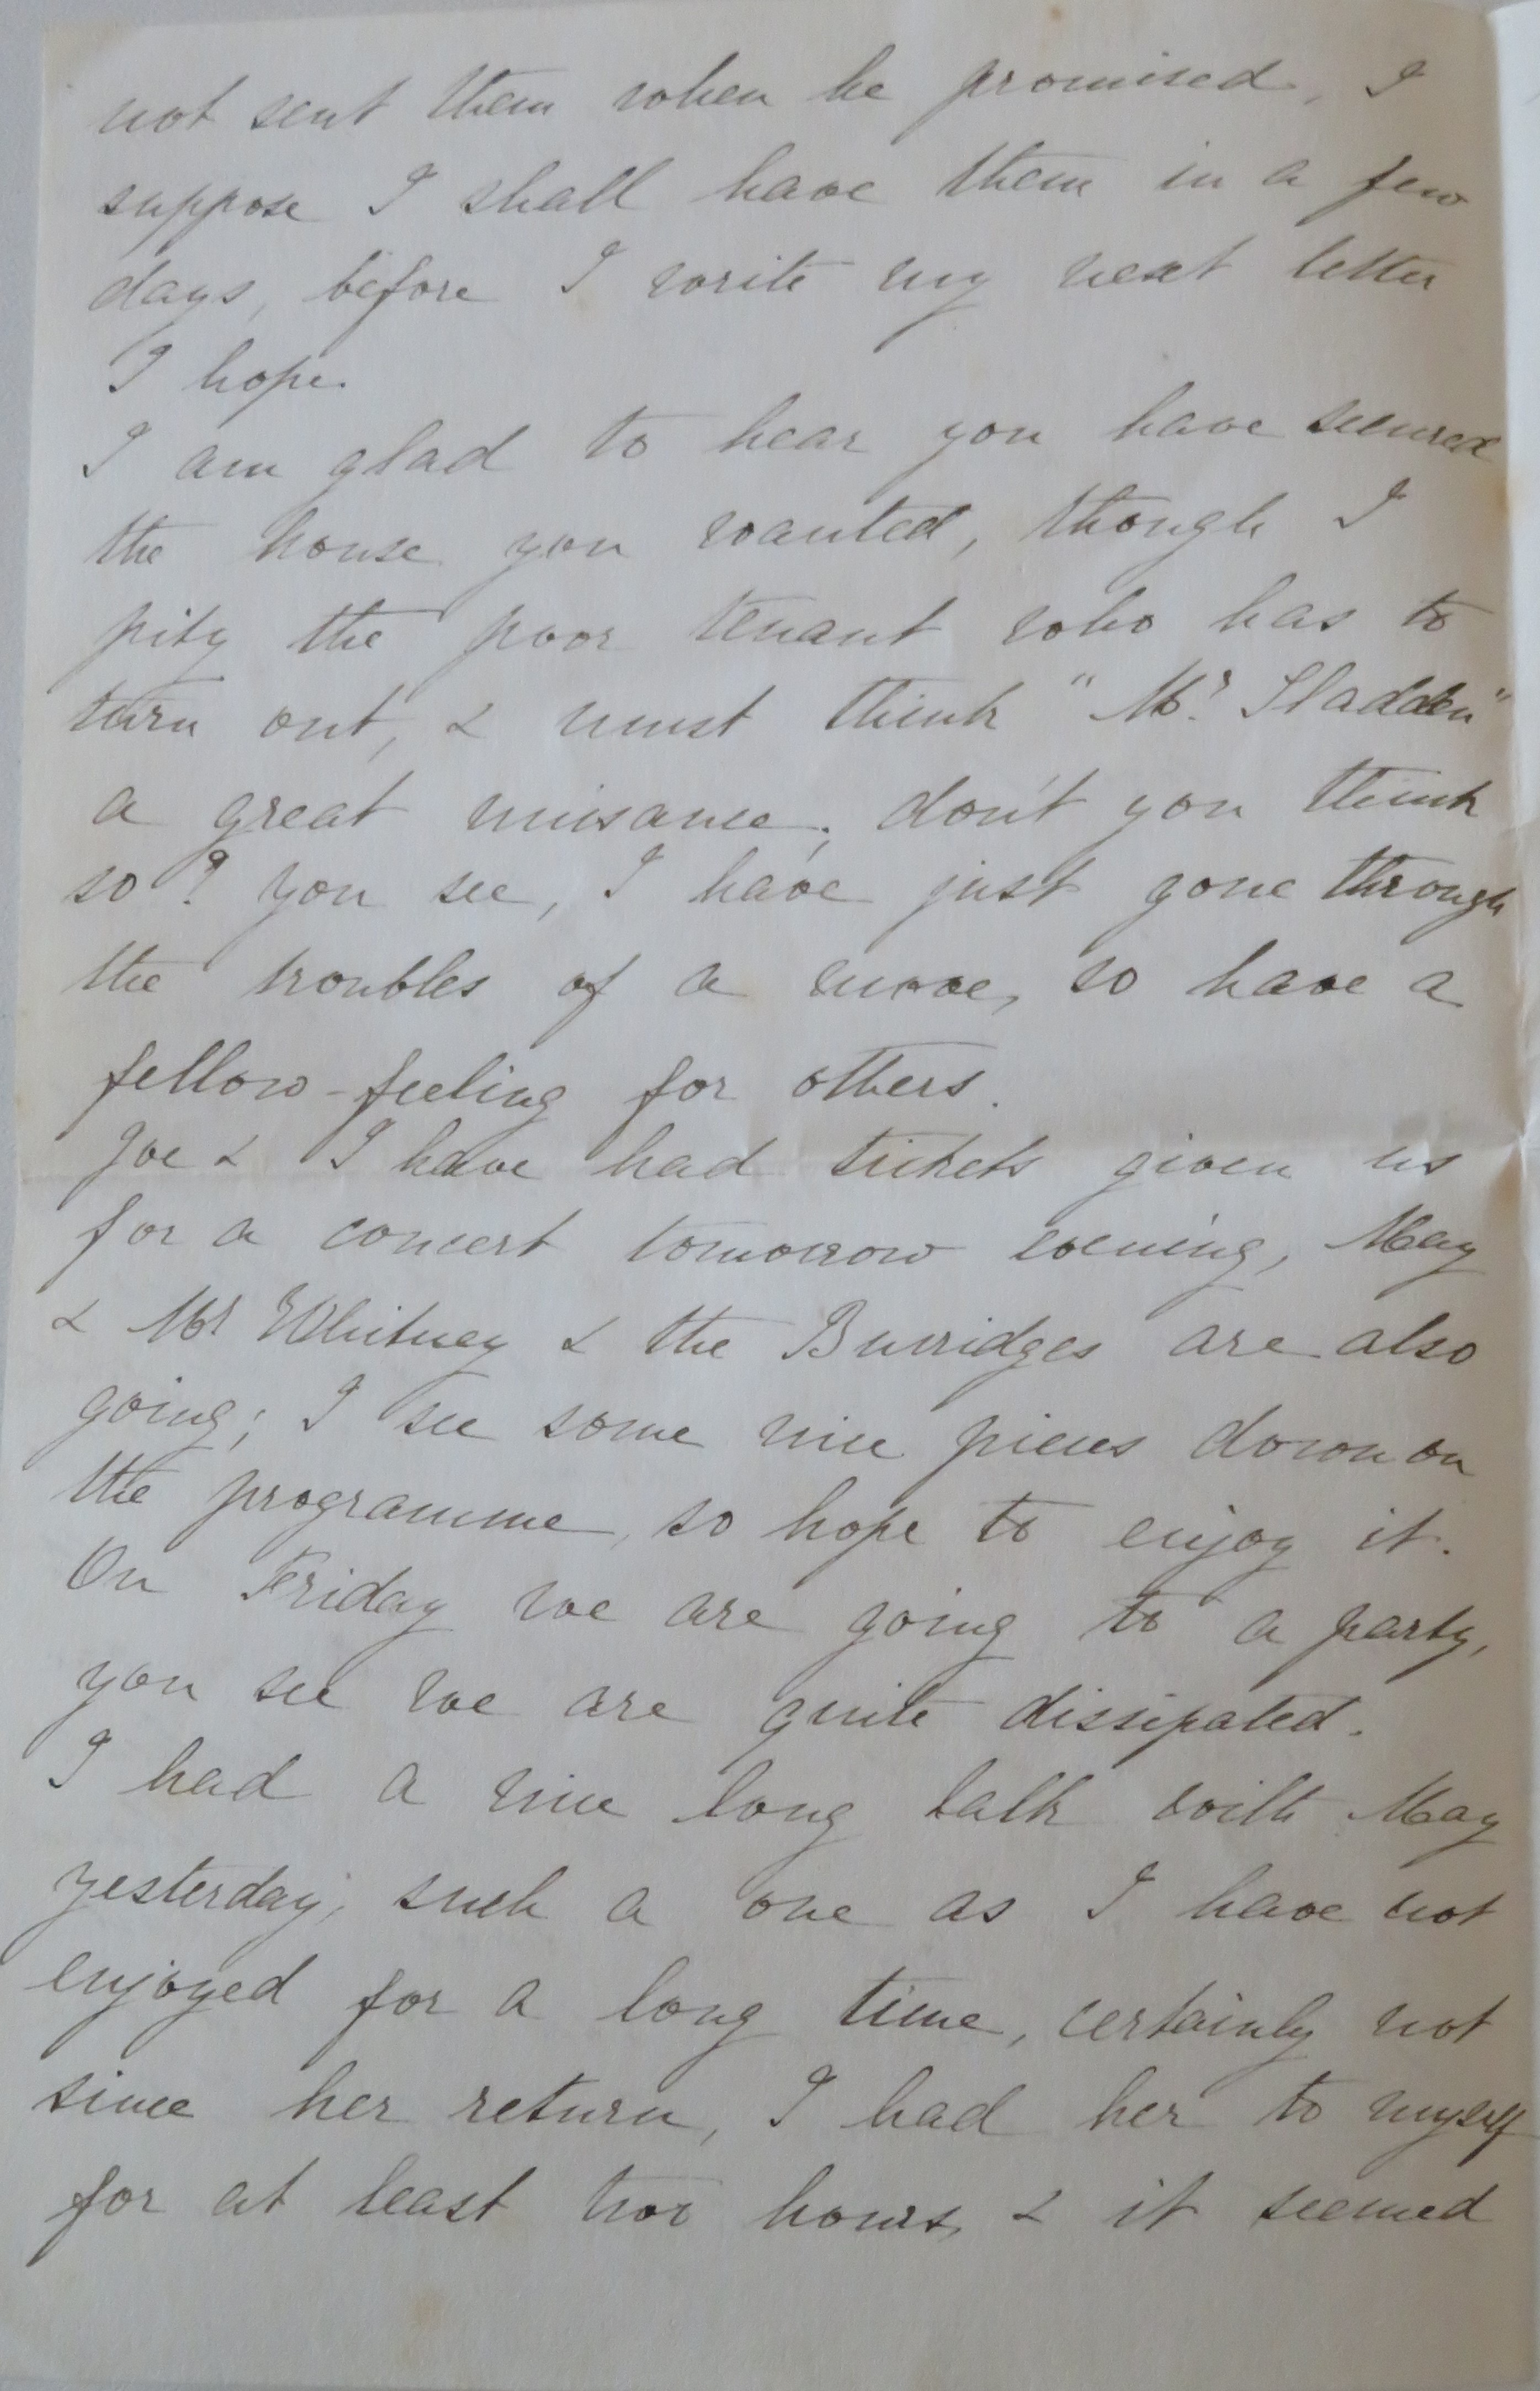 not sent them when he promised, I
suppose I shall have them in a few
days, before I write my next letter
I hope.
I am glad to hear you have secured
the house you wanted, though I
pity the poor tenant who has to
turn out, & must think "Mr. Sladden"
a great nuisance; don't you think
so? you see, I have just gone through
the troubles of a move, so have a
fellow-feeling for others.
Joe & I have had tickets given us
for a concert tomorrow evening, May
& Mr Whitney & the Burridges are also
going; I see some nice pieces down on
the programme, so hope to enjoy it.
On Friday we are going to a party,
you see we are quite dissipated.
I had a nice long talk with May
yesterday, such a one as I have not
enjoyed for a long time, certainly not
since her return, I had her to myself
for at least two hours, & it seemed